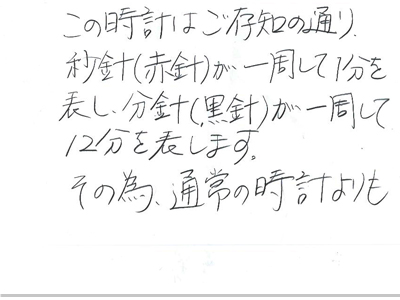 この時計はご存知の通り、
秒針(赤針)が一周して1分を
表し、分針(黒針)が一周して
12分を表します。
その為、通常の時計よりも